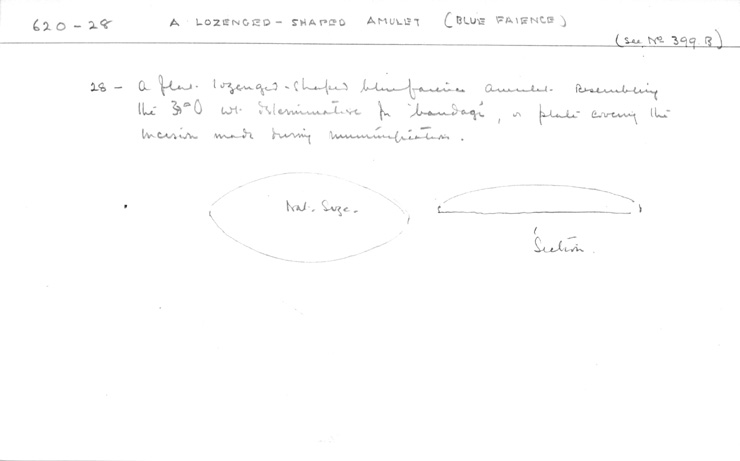 620-28 A LOZENGED-SHAPED AMULET (BLUE FAIENCE)
(see No 399 B)
28 - A flat lozenged-shaped blue faience amulet. Resembling
the wt determinative for 'bandage', or plate covering the
incision made during mummification.
Nat. Size.
Section.